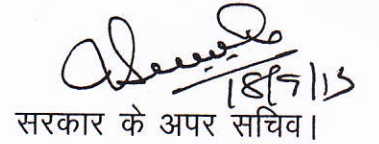 18/9/15
सरकार के अपर सचिव।